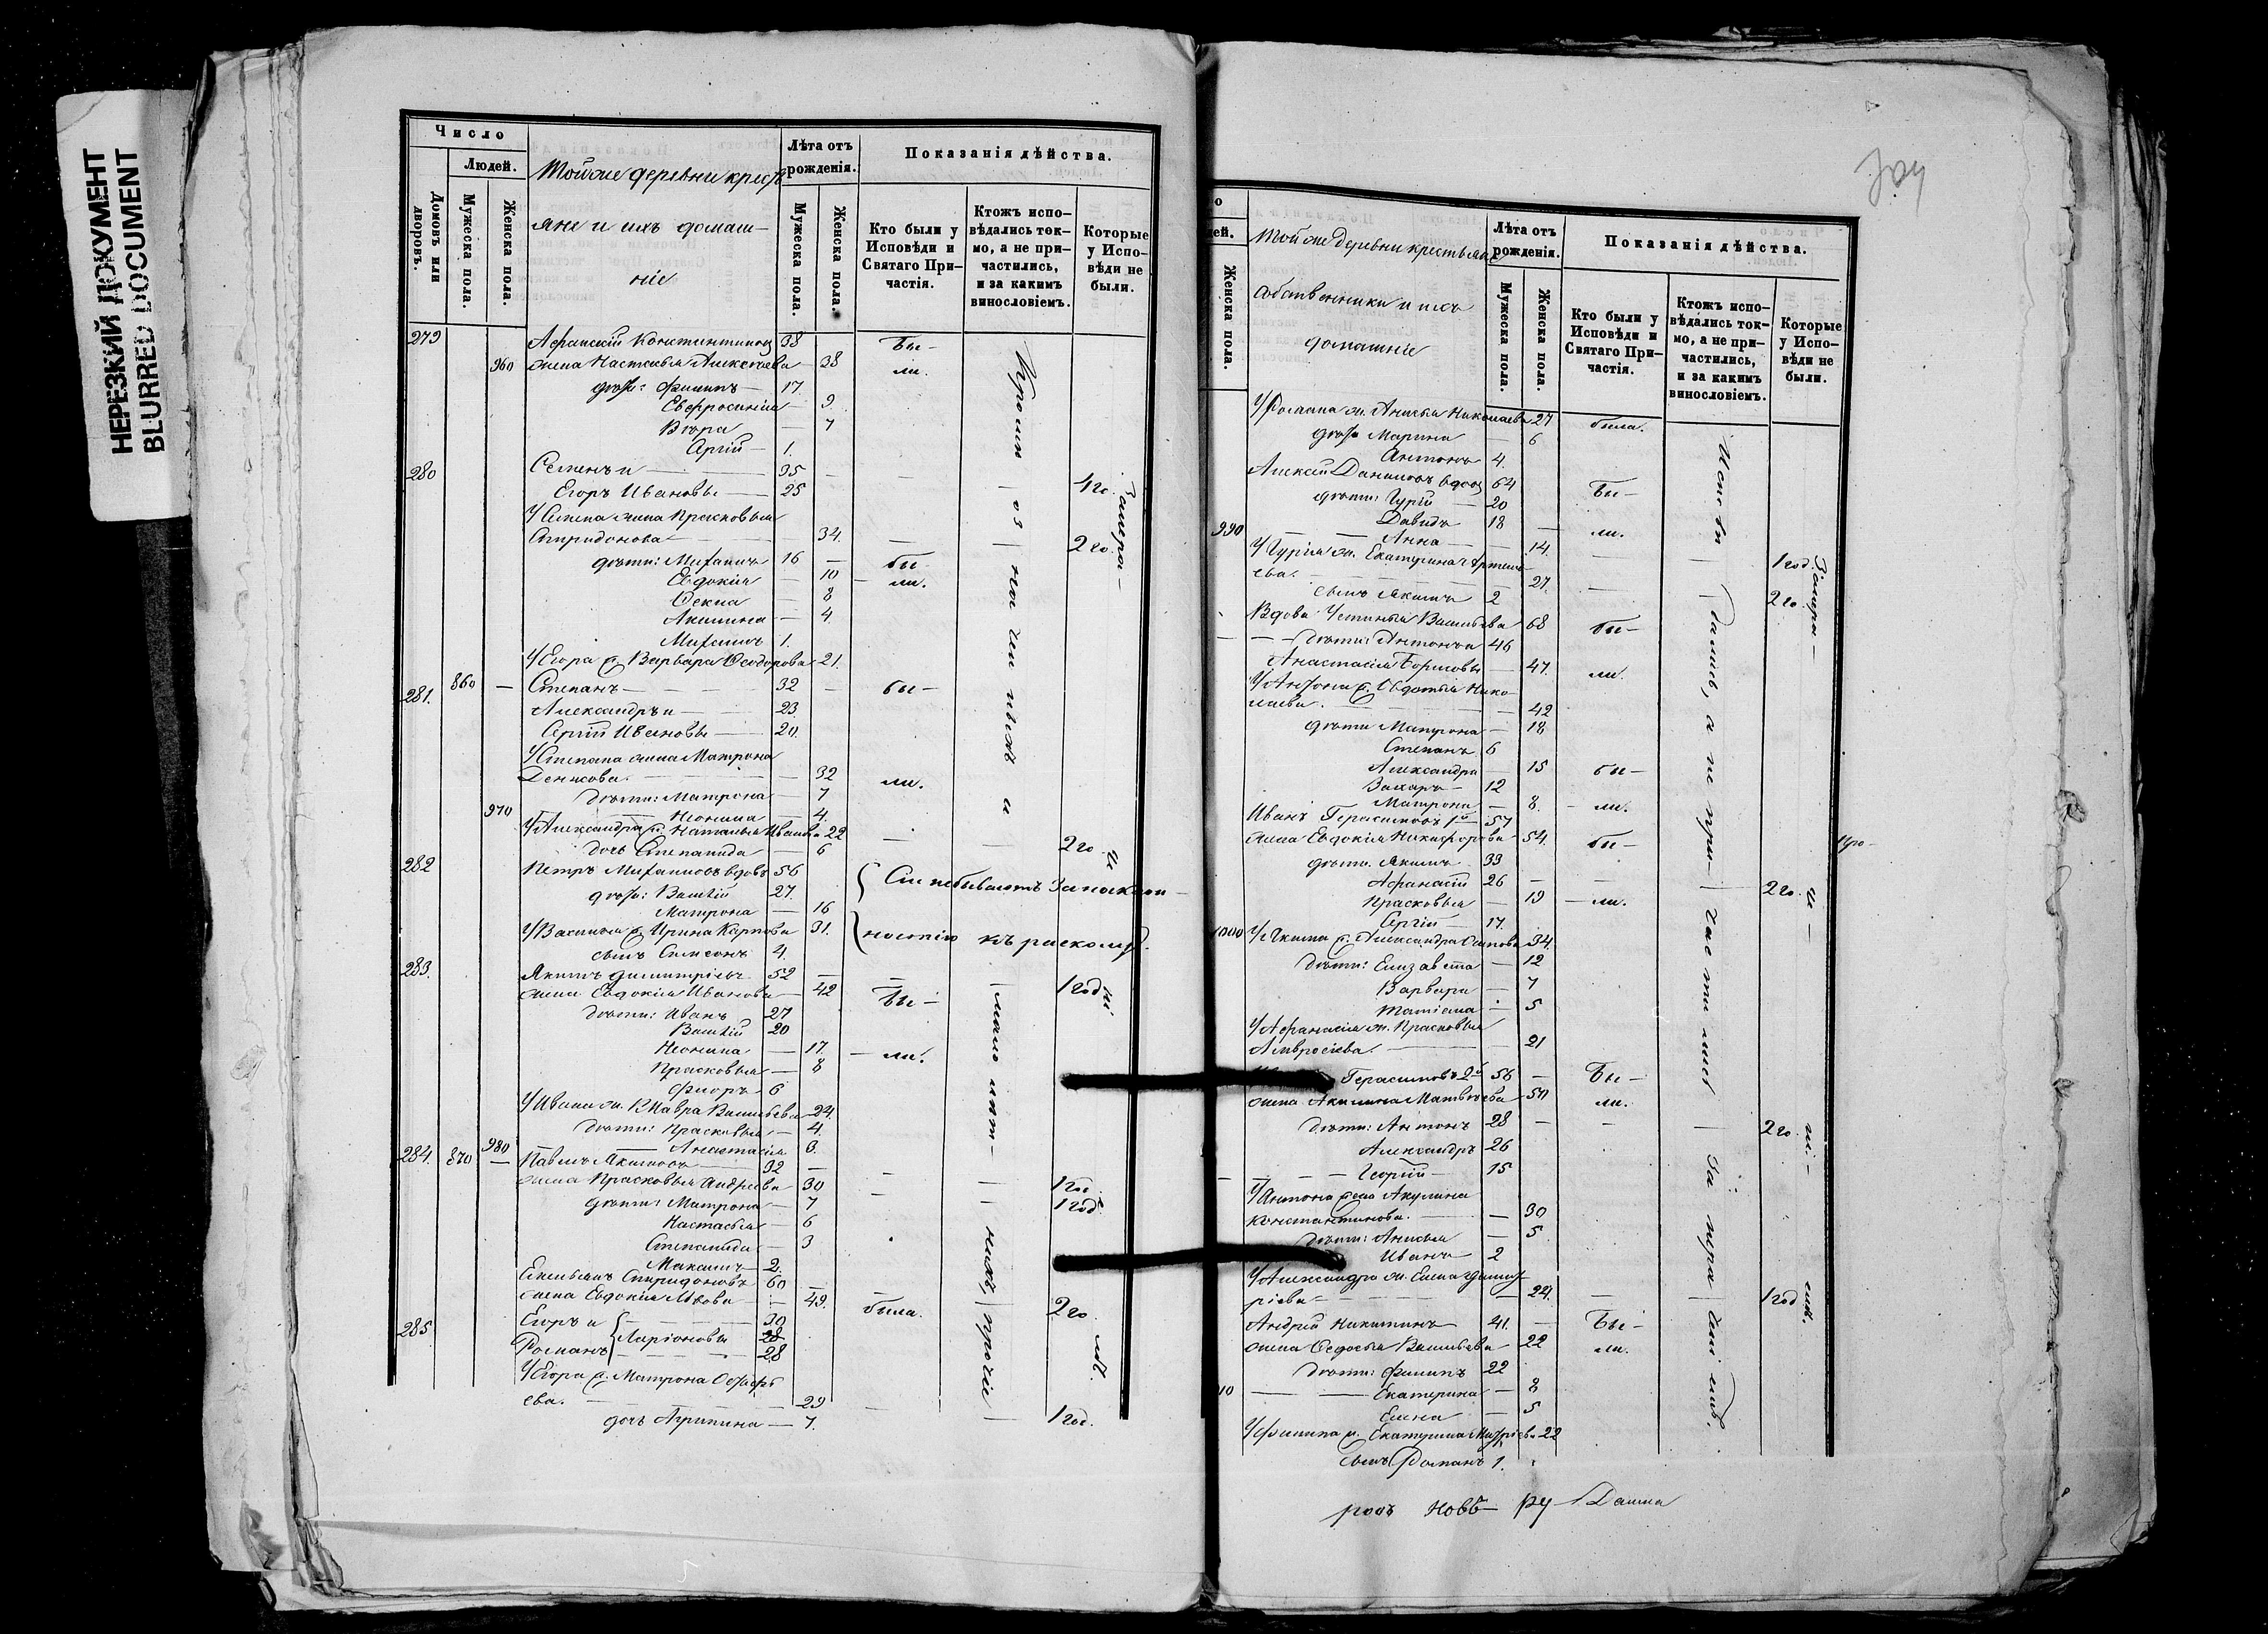 НЕРЕЗКИЙ ДОКУМЕНТ
BLURRED DOCUMENT
Число
Людей.
Домовъ или дворовъ.
Мужеска пола.
Женска пола.
Тойже деревни крестья
яне и ихъ домаш-
ніе
Лѣта отъ рожденія.
Мужеска пола.
Женска пола.
Показанія дѣйства.
Кто были у Исповѣди и Святаго Причастія.
Ктожъ исповѣдались токмо, а не причастились, и за какимъ винословіемъ.
Которые у Исповѣди не были.
279 Афанасій Константиновъ 38 Бы-
960 жена Настасья Алексѣева 38 ли.
дѣти: Филипъ 17.
Евфросинія 9
Вѣра 7
Сергій 1.
280 Семенъ и 35
Егоръ Ивановы 25 1 го.
У Семена жена Прасковья
Спиридонова 34. 2 го
дѣти: Михаилъ 16 бы-
Евдокія 10 ли.
Ѳекла 8
Акилина 4.
Михаилъ 1.
У Егора ж. Варвара Ѳеодорова 21.
281. 860 Степанъ 32 бы-
Александръ и 23
Сергій Ивановы 20.
У Степана жена Матрона
Денисова. 32 ли.
дѣти: Матрона 7
970 Неонила 4.
У Александра ж. Наталья Иванова 22
дочь Степанида 6 2 го
282 Петръ Михаиловъ вдовъ 56
дѣти: Василій 27.
Матрона 16
У Василья ж. Ирина Карпова 31.
сынъ Симеонъ 4.
къ расколу.
283. Якимъ Димитріевъ 52
жена Евдокія Иванова 42 Бы- 1 год
дѣти: Иванъ 27
Василій 20
Неонила 17. ли.
Прасковья 8
Флоръ 6
У Ивана ж. Мавра Васильева 24.
дѣти: Прасковья 4.
980 Анастасія 3.
284. 870 Павелъ Якимовъ 32
жена Прасковья Андреева 30 1 год
дѣти: Матрона 7 1 год
Настасья 6
Степанида 3
Максимъ 2.
Емельянъ Спиридоновъ 60
жена Евдокія Львова 49. была. 2 го
285. Егоръ и 30
Ларіоновы 28
Романъ 28
У Егора ж. Матрона
ева. 29
дочь Агрипина 7. 1 год.
Женска пола.
Тойже деревни крестьяне
собственники и ихъ
домашніе
Лѣта отъ рожденія.
Мужеска пола.
Женска пола.
Показанія дѣйства.
Кто были у Исповѣди и Святаго Причастія.
Ктожъ исповѣдались токмо, а не причастились, и за какимъ винословіемъ.
Которые у Исповѣди не были.
У Романа ж. Анисья Николаева 27 была.
дѣти Марина 6
Антонъ 4.
Алексѣй Даниловъ вдовъ 64 Бы-
дѣти: Гурій 20
Давидъ 18
990 Анна 14. ли.
У Гурія ж. Екатерина Артемь- 1 год.
ева. 27.
сынъ Якимъ 2 2 го
Вдова Устинья Васильева 68 бы-
дѣти: Антонъ 46
Анастасія Борисовы 47. ли.
У Антона ж. Евдокія Нико-
лаева. 42
дѣти Матрона 18
Степанъ 6
Александра 15 бы-
Захаръ 12
Матрона 8. ли.
Иванъ Герасимовъ 1й 57
жена Евдокія Никифорова 54. бы-
дѣти. Якимъ 33
Афанасій 26 2 го.
Прасковья 19 ли.
Сергій 17.
1000 У Якима ж. Александра Осипова 34.
дѣти: Елизавета 12
Варвара 7
Татіана 5
У Афанасія ж. Прасковья
Амвросіева. 21
Герасимовъ 2й 56 Бы-
жена Акилина Матвѣева 50 ли.
дѣти: Антонъ 28 2 го
Александръ 26
Георгій 15
У Антона жена Акулина
Константинова. 30
дѣти: Анисья 5
Иванъ 2
У Александра ж. Елена Димит
ріева 24. 1 год
Андрей Никитинъ 41. Бы-
жена Ѳедосья Васильева 22 ли.
дѣти: Филипъ 22
10 Екатерина 8
Елена 5
У Филипа ж. Екатерина 22
сынъ Романъ 1.